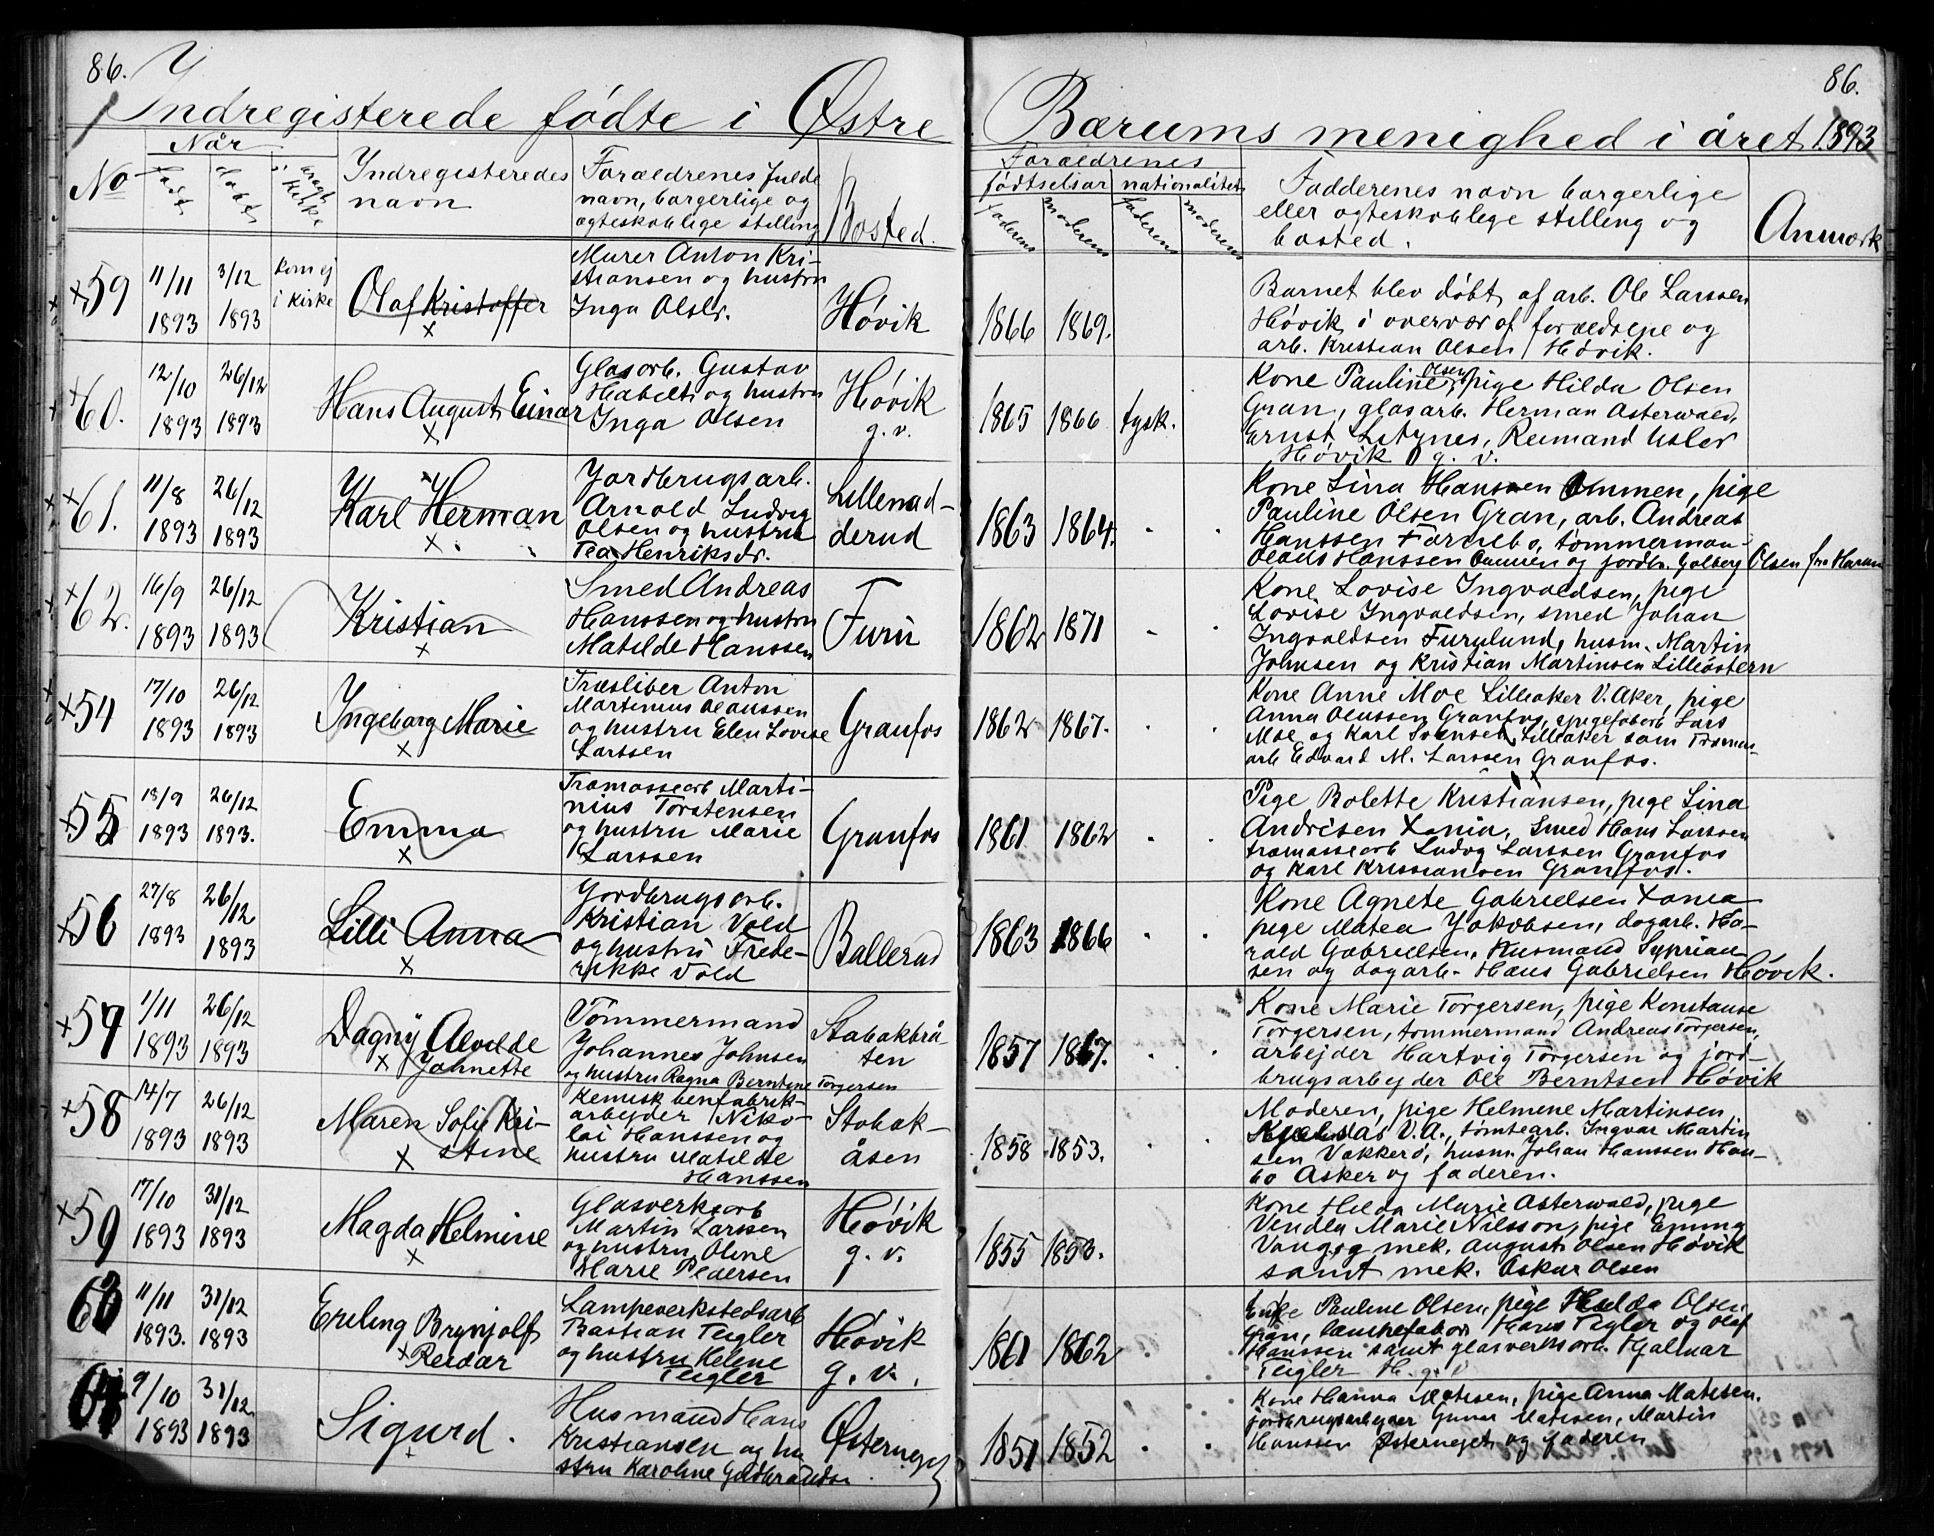 86.
Indregisterede fødte i Østre Bærums menighed i året 1893
86.
No
Når
født
døbt
bragt i kirke
Indregisteredes navn
Forældrenes fulde
navn, borgerlige og
ægteskablige stilling
Bosted.
Forældrenes
fødtselsår
nationalitet
faderens
moderens
faderen
moderens
Fadderenes navn borgerlige
eller ægteskablige stilling og
bosted.
Anmærk
59
11/11
1893
3/12
1893
kom ej
i kirke
Olaf Kristoffer
Murer Anton Kri-
stiansen og hustru
Inga Olsdr.
Høvik
1866
1869.
Barnet blev døbt af arb. Ole Larssen
Høvik i overvær af forældrene og
arb. Kristian Olsen Høvik.
60.
12/10
1893
26/12
1893
Hans August Einar
Glasarb. Gustav
Habelt og hustru
Inga Olsen
Høvik
g. v.
1865
1866
tysk.
Kone Pauline Olsen, pige Hilda Olsen
Gran, glasarb. Herman Asterwald,
Ernst, Reimand
Høvik g. v.
61.
11/8
1893
26/12
1893
Karl Herman
Jordbrugsarb.
Arnold Ludvig
Olsen og hustru
Tea Henriksdr.
Lillenad-
derud
1863
1864.
Kone Lina Hanssen Ommen, pige
Pauline Olsen Gran, arb. Andreas
Hanssen Fornebo, tømmerman-
Hanssen Ommen og jordbr. Golberg Olsen fra Haram
62.
16/9
1893
26/12
1893
Kristian
Smed Andreas
Hanssen og hustru
Matilde Hanssen
Furu
1862
1871
Kone Lovise Ingvaldsen, pige
Lovise Ingvaldsen, smed Johan
Ingvaldsen Furulund, husm. Martin
Johnsen og Kristian Martinsen Lilløstern
54
17/10
1893
26/12
1893
Ingeborg Marie
Træsliber Anton
Martinius Olaussen
og hustru Elen Lovise
Larssen
Granfos
1862
1867.
Kone Anne Moe Lilleaker V. Aker, pige
Anna Olaussen Granfos, spigerfabarb Lars
Moe og Karl Svensen, Lilleaker samt Træmas-
arb Edvard M. Larssen Granfos.
55
18/9
1893
26/12
1893.
Emma
Træmassearb Marti-
nius Torstensen
og hustru Marie
Larssen
Granfos
1861
1862
Pige Bolette Kristiansen, pige Lina
Andrisen Xania, Smed Hans Larssen
træmassearb Ludvg Larssen Granfos
og Karl Kristiansen Granfos.
56
27/8
1893
26/12
1893
Lilli Anna
Jordbrugsarb.
Kristian Vold
og hustru Frede-
rikke Vold
Ballerud
1863
1866
Kone Agnete Gabrielsen Xania
pige Matea Jakobsen, dagarb. Ha-
rald Gabrielsen, Husmand Syprian-
sen og dagarb. Hans Gabrielsen Høvik.
57
1/11
1893
26/12
1893
Dagny Alvilde
Johnette
Tømmermand
Johannes Johnsen
og hustru Ragna Berntine Torgersen
Stabækbrå-
ten
1857
1867.
Kone Marie Torgersen, pige Konstanse
Torgersen, tømmermand Andreas Torgersen,
arbejder Hartvig Torgersen og jord-
brugsarbejder Ole Berntsen Høvik
58
14/7
1893
26/12
1893
Maren Sofie Kri-
stine
Kemisk benfabrik-
arbejder Niko-
lai Hanssen og
hustru Matilde
Hanssen
Stabæk-
åsen
1858
1853.
Moderen, pige Helmene Martinsen
V. A., tømtearb. Ingvar Martin
sen Vækkerø, husm. Johan Hanssen Han-
bo Asker og faderen.
59
17/10
1893
31/12
1893
Magda Helmine
Glasverksarb
Martin Larssen
og hustru Oline
Marie Pedersen
Høvik
g. v.
1855
1853.
Kone Hilda Marie Asterwald, pige
Vendla Marie Nilsson, pige Emma
Vang og mek. August Olsen Høvik
samt mek. Oskar Olsen
63
11/11
1893.
31/12
1893
Erling Brynjolf
Reidar
Lampeverkstedsarb
Bastian Teigler
og hustru Helene
Teigler
Høvik
g. v.
1861
1862
Enke Pauline Olsen, pige Hilda Olsen
Gran, Hans Teigler og Olaf
Hanssen samt glasverksarb. Hjalmar
Teigler H. g. v
64
9/10
1893
31/12
1893
Sigurd.
Husmand Hans
Kristiansen og hu
stru Karoline Guldbrandsn
Østerneget
1851
1852
Kone Hanna Matisen, pige Anna Matisen,
jordbrugsarbejder Gunar Matisen, Martin
Hanssen Østerneget og faderen